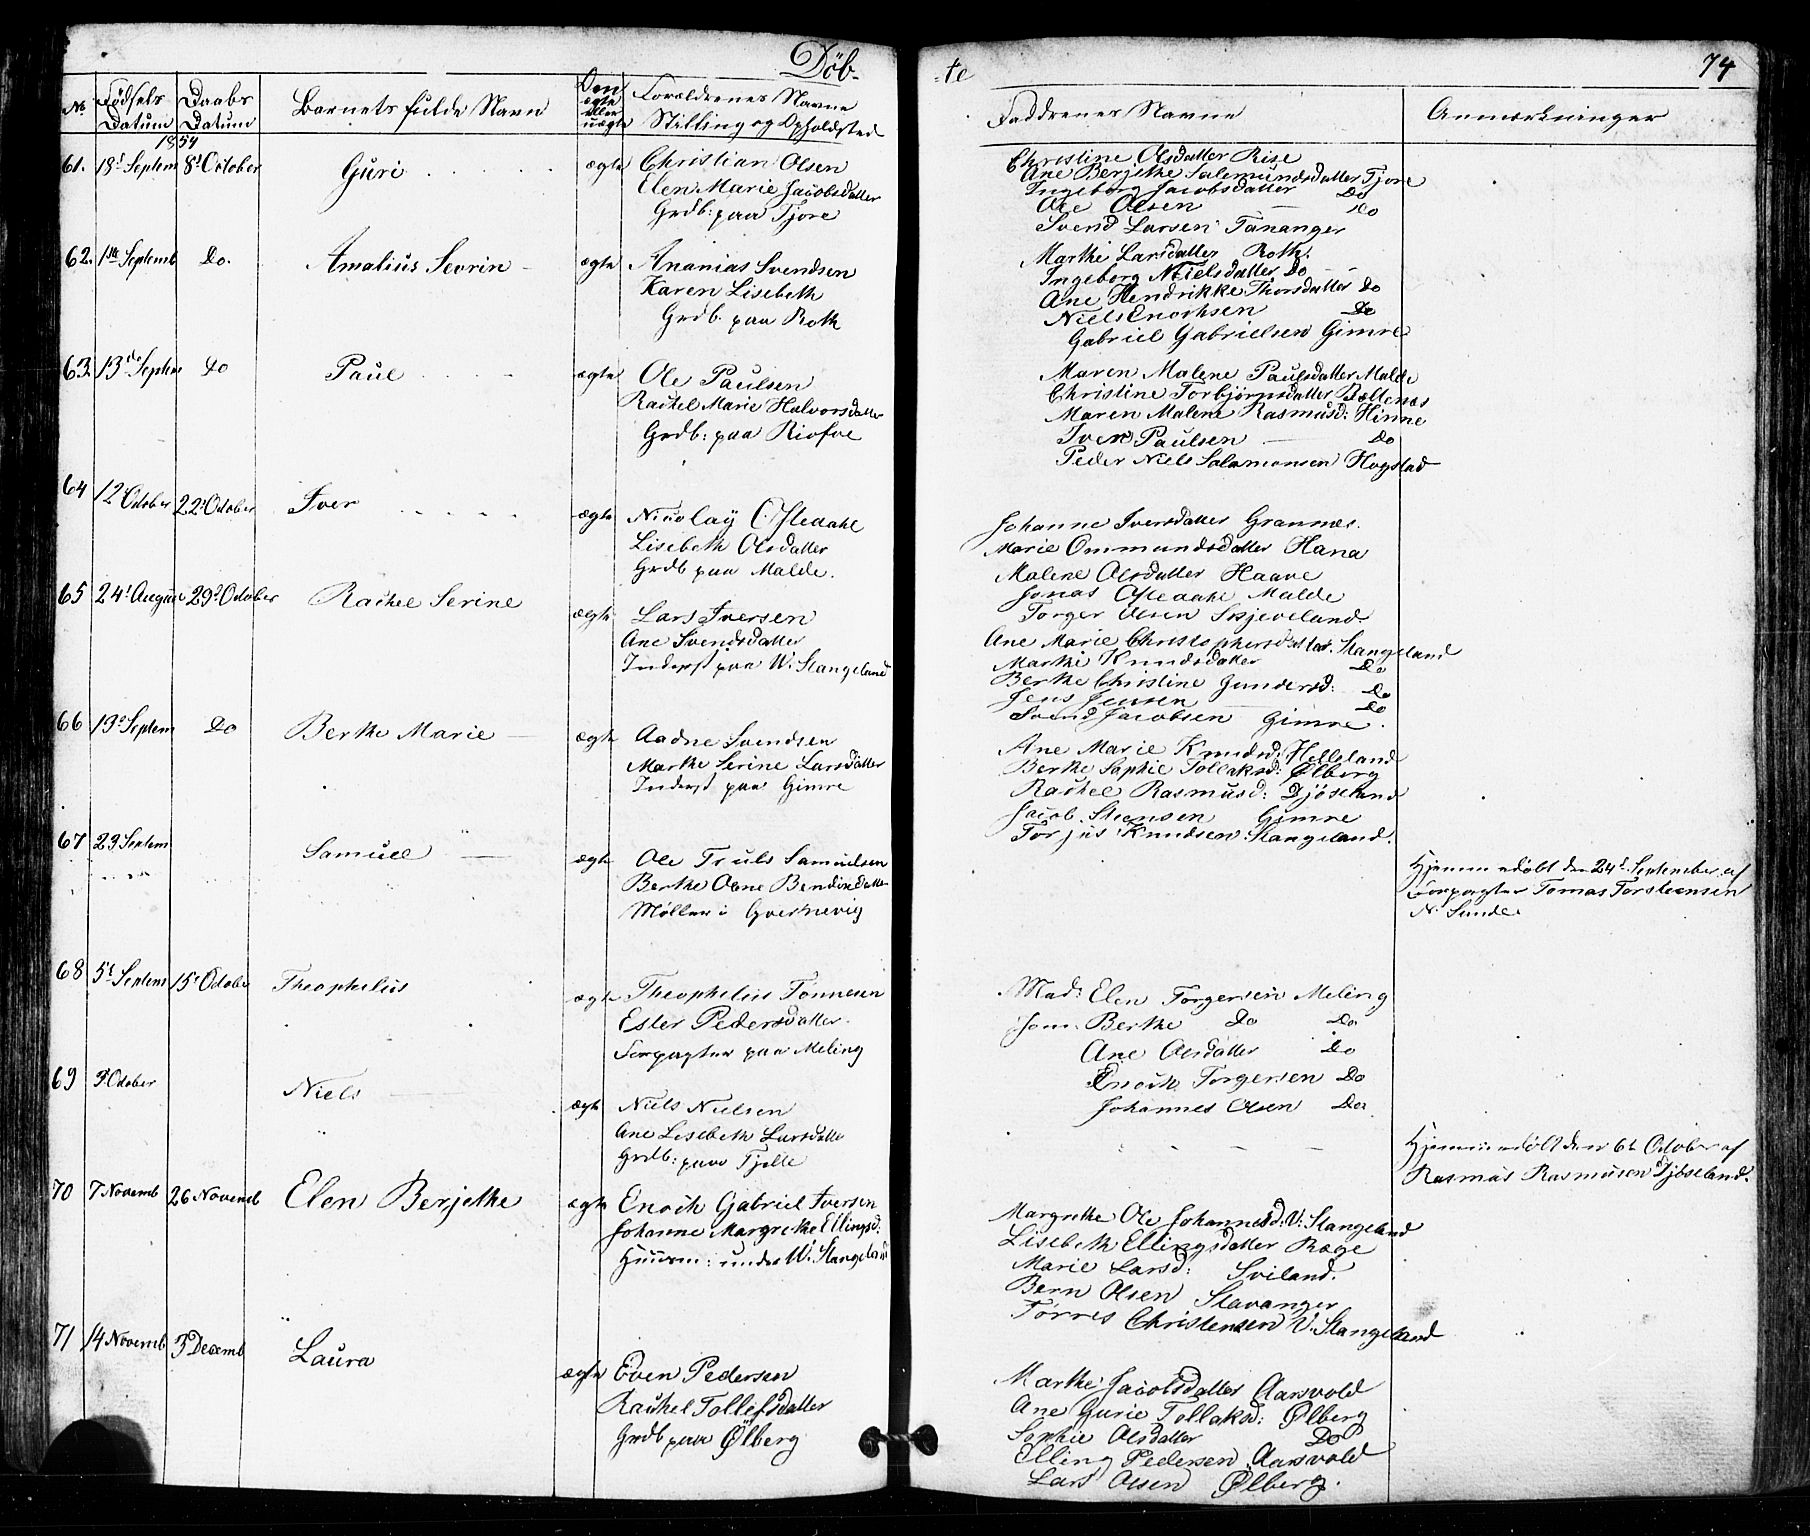 Döb-
No
Fødsels Datum
Daabs Datum
Barnets fulde Navn
Om ægte eller uægte
Forældrenes Navne
Stilling og Opholdsted
1854
61. 18d Septem 8d October Guri ægte Christian Olsen
Elen Marie Jacobsdatter
Grdb: paa Tjore
62. Septemb Do. Amalius Sevrin ægte Ananias Svendsen
Karen Lisebeth
Grdb. paa Roth
63. 13de Septem Do Paul ægte Ole Paulsen
Rachel Marie Halvorsdatter
Grdb: paa
64 12 October 22 October Iver ægte Nicolay Oftedahl
Lisebeth Olsdatter
Grdb paa Malde.
65 24d August 29d October Rachel Serine ægte Lars Iversen
Ane Svendsdatter
Inderst paa W. Stangeland
66 19d Septem Do Berthe Marie ægte Aadne Svendsen
Marthe Serine Larsdatter
Inderst paa Gimre
67 23 Septem Samuel ægte Ole Truls Samuelsen
Berthe Oline Bendixdatter
Møller i Gverhevig
68 5t Septem 15t Octobe Theophilus ægte Theophilus Tonnesen
Ester Pedersdatter.
Forpagter paa Meling
69 October Niels ægte Niels Nielsen
Ane Lisebeth Larsdatte
Grdb: paa Tjelte
70 7 Novemb 26 Novemb Elen Berjethe ægte Enoch Gabriel Iversen
Johanne Margrethe Ellingsd:
Huusm: under W. Stangeland
71 14 Novemb 3 Decemb Laura ægte Even Pedersen
Rachel Tollefsdatter
Grdb paa Ølberg
-te
74
Faddrenes Navne
Anmærkninger
Christine Olsdatter Risе
Ane Berjethe Salemundsdatter Tjore
Ingeborg Jacobsdatter Do
Ole Olsen Do
Svend Larsen Tananger
Marthe Larsdatter Roth.
Ingeborg Nielsdatter Do
Ane Hendrikke Thorsdatter Do
Niels Enochsen Do
Gabriel Gabrielsen Gimre
Maren Malene Paulsdatter Malde
Christine Torbjörnsdatter
Maren Malene Rasmusd: Hinne
Iver Paulsen Do
Peder Niels Salamonsen Hogstad
Johanne Iversdatter Grannes.
Marie Ommundsdatter Hana
Malene Olsdatter Haave
Jonas Oftedahl Malde
Torger Olsen Skjeveland.
Ane Marie Christophersdatter. Stangeland
Marthe Knudsdatter Do
Berthe Christine Gundersd: Do
Jens Jensen Do
Svend Jacobsen Gimre.
Ane Marie Knudsd: Helleland
Berthe Sophie Tollaksd: Ølberg
Rachel Rasmusd: Djöseland
Jacob Steensen Gimre
Torjus Knudsen Stangeland.
Hjemmedöbt den 24d September af
Forpagter Tomas Torsteensen
N. Sunde
Mad: Elen Torgersen Meling
Jom. Berthe Do Do
Ane Olsdatter Do
Enoch Torgersen Do
Johannes Olsen Do.
Hjemmedöbt den 6t October af
Rasmus Rasmusen Djöseland.
Margrethe Ole Johannesd. V: Stangeland
Lisebeth Ellingsdatter Ræge
Marie Larsd: Sviland.
Bern Olsen Stavanger
Törres Christensen V: Stangeland
Marthe Jacobsdatter Aarsvold
Ane Gurie Tollaksd: Ølberg
Sophie Olsdatter Do
Elling Pedersen Aarsvold
Lars Olsen Ølberg.